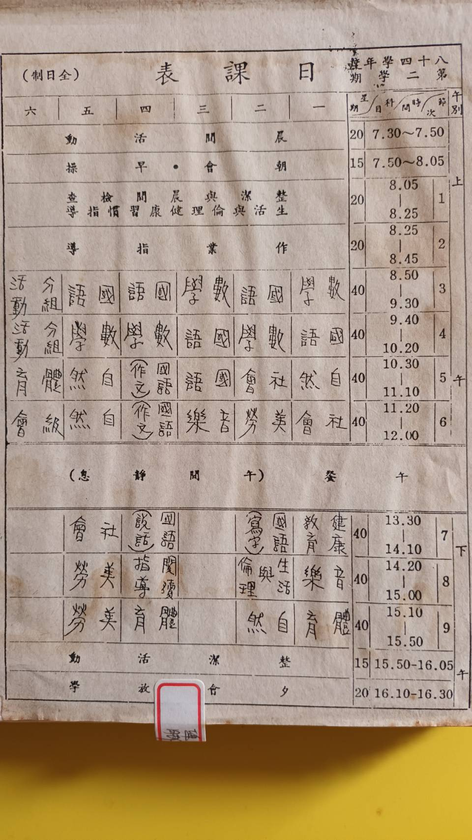 八十四學年度
第二學期
日課表
(全日制)
午別 節次 時間 科目 星期 一 二 三 四 五 六
上午
7.30~7.50 20 晨間活動
7.50~8.05 15 朝會•早操
1 8.05-8.25 20 整潔與晨間檢查
生活與倫理健康習慣指導
2 8.25-8.45 20 作業指導
3 8.50-9.30 40 數學 國語 數學 國語 國語 分組活動
4 9.40-10.20 40 國語 數學 國語 數學 數學 分組活動
5 10.30-11.10 40 自然 社會 國語 國語(作文) 自然 體育
6 11.20-12.00 40 社會 美勞 音樂 國語(作文) 自然 級會
午餐 (午間靜息)
下午
7 13.30-14.10 40 健康教育 國語(寫字) 國語(說話) 社會
8 14.20-15.00 40 音樂 生活與倫理 閱讀指導 美勞
9 15.10-15.50 40 體育 自然 體育 美勞
15.50-16.05 15 整潔活動
16.10-16.30 20 夕會放學